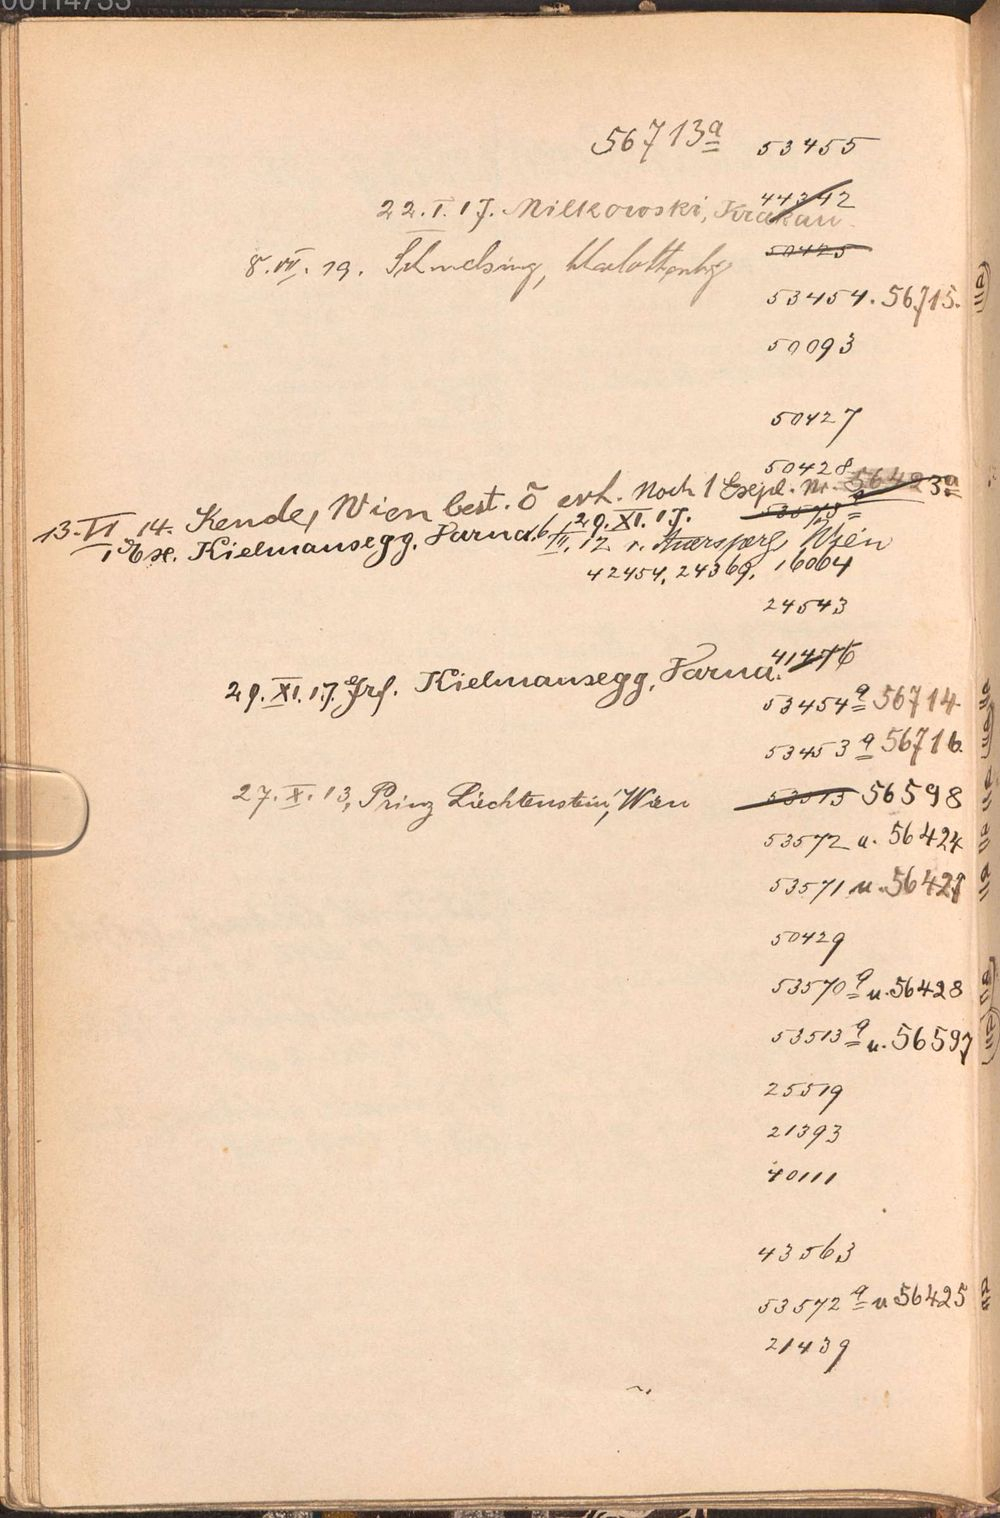 00114733
56713a 53455
44342
22. I. 17. Milkowski, Krakau.
50425
8. VII. 19.
53454. 56715. 11a
50093
50427
50428
13. VI 14. Kende, Wien best. õ erh. Noch 1 Expl. Nr. 56423a
29. XI. 17.
1 Ex. Kielmansegg, Varna. Wien
42454, 24369, 16064
24543
41476
29. XI. 17. Grf. Kielmansegg, Varna.
53454a 56714.
53453a 56716.
27. X. 13, Prinz Liechtenstein, Wien 53513 56598
53572 u. 56424
53571 u. 56427
50429
53570a u. 56428
53513a u. 56597
25519
21393
40111
43563
53572a u 56425
21439